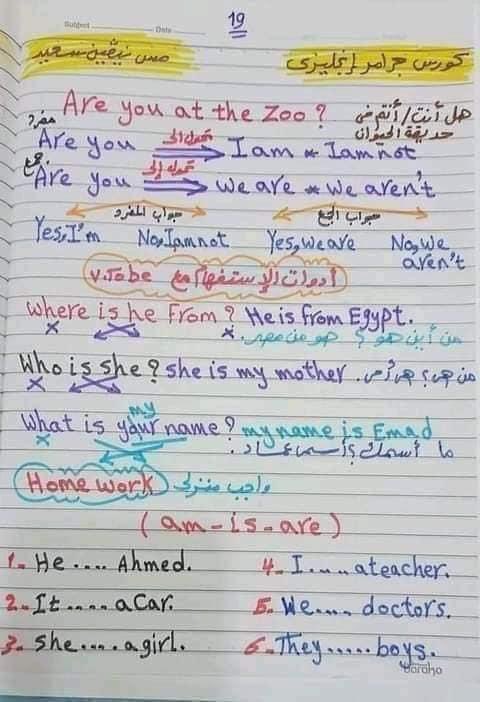 19
Subject Date
كورس جرامر إنجليزى مس نيڤين سعيد
Are you at the Zoo? هل أنت/أنتم فى حديقة الحيوان
مفرد Are you تحول إلى I am * I am not
جمع Are you تحول إلى we are * we aren't
جواب المفرد جواب الجمع
Yes, I'm No, I am not Yes, we are No, we aren't
أدوات الإستفهام مع v. To be
Where is he from? He is from Egypt.
من أين هو؟ هو من مصر.
Who is she? she is my mother. من هى؟ هى أمى
my
What is your name? my name is Emad
ما أسمك؟ أسمى عماد.
Home work واجب منزلى
(am - is - are)
1- He .... Ahmed. 4- I ..... a teacher.
2- It .... a car. 5- We .... doctors.
3- She .... a girl. 6- They ..... boys.